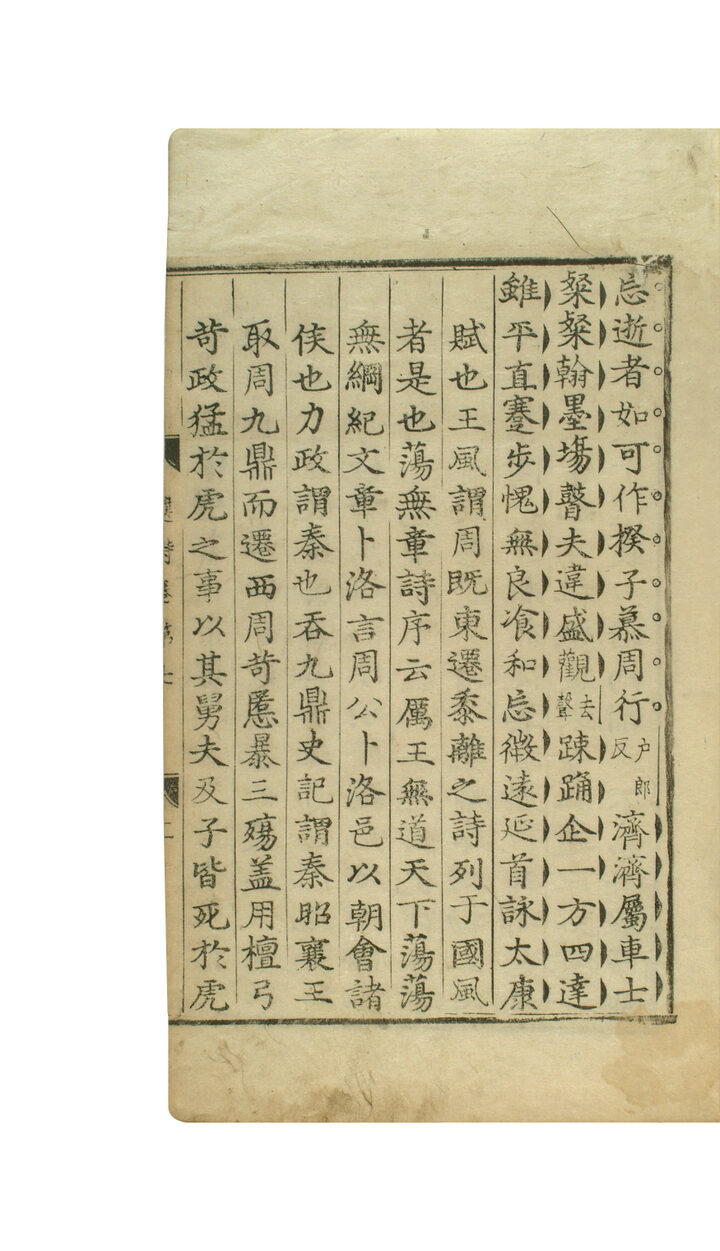 忘逝者如可作揆子慕周行户郎反濟濟屬車士
粲粲翰墨場瞽夫違盛觀去聲竦踊企一方四達
雖平直蹇步愧無良飡和忘微遠延首詠太康
賦也王風謂周既東遷黍離之詩列于國風
者是也蕩無章詩序云厲王無道天下蕩蕩
無綱紀文章卜洛言周公卜洛邑以朝會諸
侯也力政謂秦也吞九鼎史記謂秦昭襄王
取周九鼎而遷西周苛慝暴三殤盖用檀弓
苛政猛於虎之事以其舅夫及子皆死於虎
選詩卷第七
二